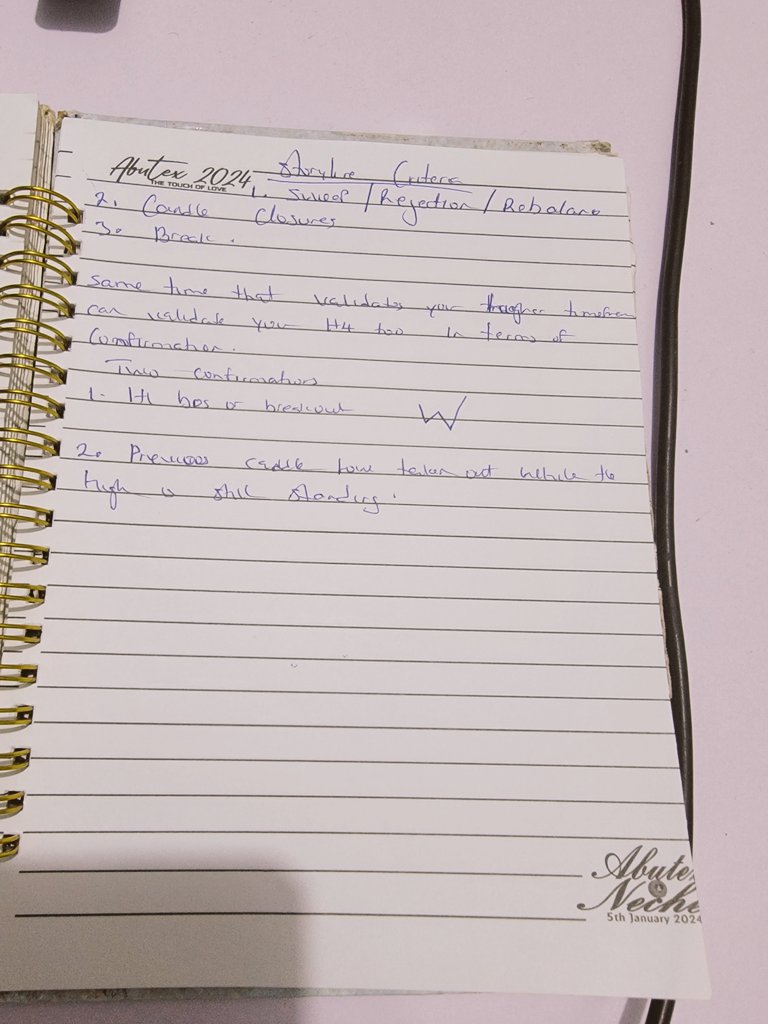 Abutex 2024
THE TOUCH OF LOVE
Storyline Criteria
1. Sweep / Rejection / Rebalance
2. Candle Closures
3. Break.
same time that validates your higher timefram
can validate your H4 too in terms of
Confirmation.
Two confirmations
1. H1 bos or breakout
2. Previous candle low taken out while the
high is still standing.
Abute
Neche
5th January 2024